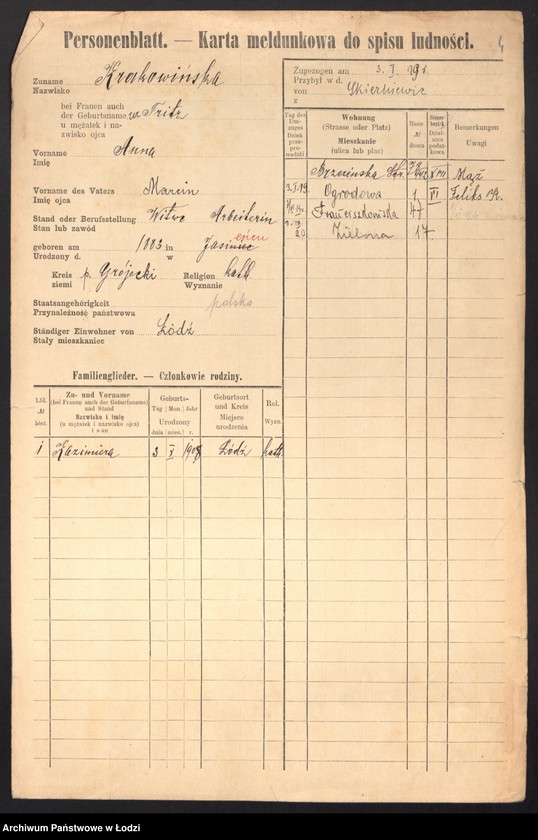 Personenblatt. — Karta meldunkowa do spisu ludności.
4
Zuname
Nazwisko
Krakowińska
bei Frauen auch
der Geburtsname
u mężatek i na-
zwisko ojca
Fritz
Vorname
Imię
Anna
Vorname des Vaters
Imię ojca
Marcin
Stand oder Berufsstellung
Stan lub zawód
Witwe Arbeiterin
geboren am
Urodzony d.
1883 in
w
Kreis
ziemi
p. Grójecki
Religion
Wyznanie
kath.
Staatsangehörigkeit
Przynależność państwowa
polska
Ständiger Einwohner von
Stały mieszkaniec
Łódź
Familienglieder. — Członkowie rodziny.
Lfd.
№
bież.
Zu- und Vorname
(bei Frauen auch der Geburtsname)
und Stand
Nazwisko i imię
(u mężatek i nazwisko ojca)
i stan
Geburts-
Tag | Mon. | Jahr
Urodzony
dnia | mies. | r.
Geburtsort
und Kreis
Miejsce
urodzenia
Rel.
Wyzn.
1 Kazimiera 3 X Łódź kath.
Zugezogen am
Przybył w d.
3. I. 191
von
z
Skierniewic
Tag des
Um-
zuges
Dzień
prze-
prowadzki
Wohnung
(Strasse oder Platz)
Mieszkanie
(ulica lub plac)
Haus-
№
domu
Steuer-
bezirk
Dziel-
nica po-
datkowa
Bemerkungen
Uwagi
Brzezinska Str. VIII Mąż
Ogrodowa 1 VI Feliks
Franciszkańska 47
20 Zielona 17
Archiwum Państwowe w Łodzi